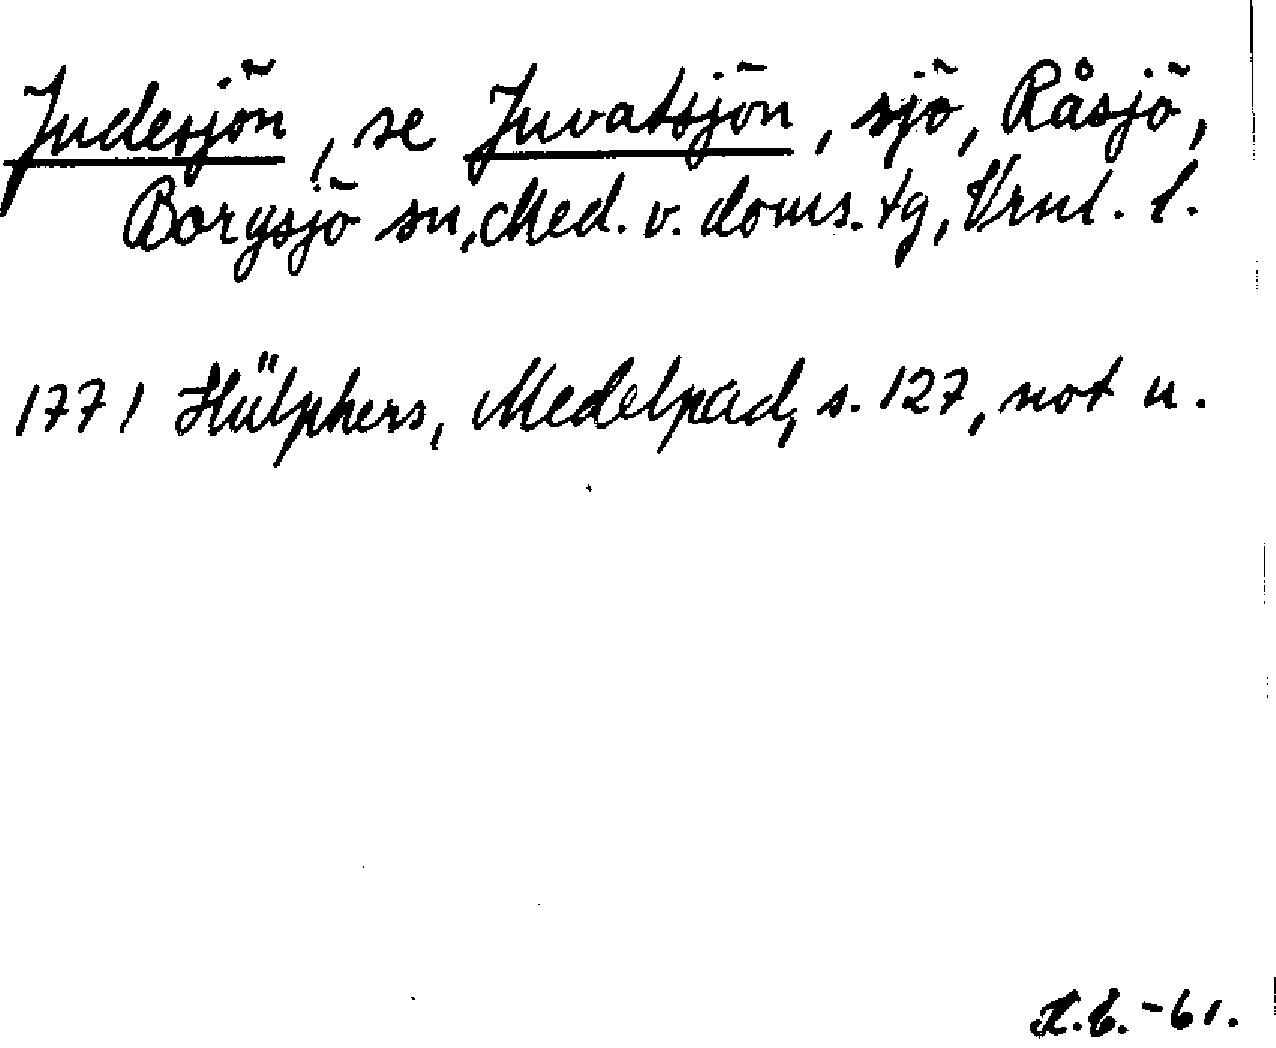 Judesjön, se Juvatsjön, sjö, Råsjö,
Borgsjö sn, Med. v. doms. tg, Vrnl. l.
1771 Hülphers, Medelpad, s. 127, not u.
-61.